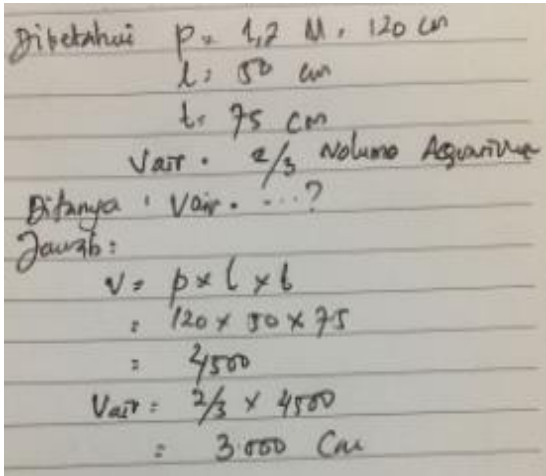 Diketahui p = 1,2 M = 120 cm
l = 50 cm
t = 75 cm
Vair = 2/3 Volume Aquarium
Ditanya : Vair = ...?
Jawab :
V = p x l x t
= 120 x 50 x 75
= 4500
Vair = 2/3 x 4500
= 3.000 Cm